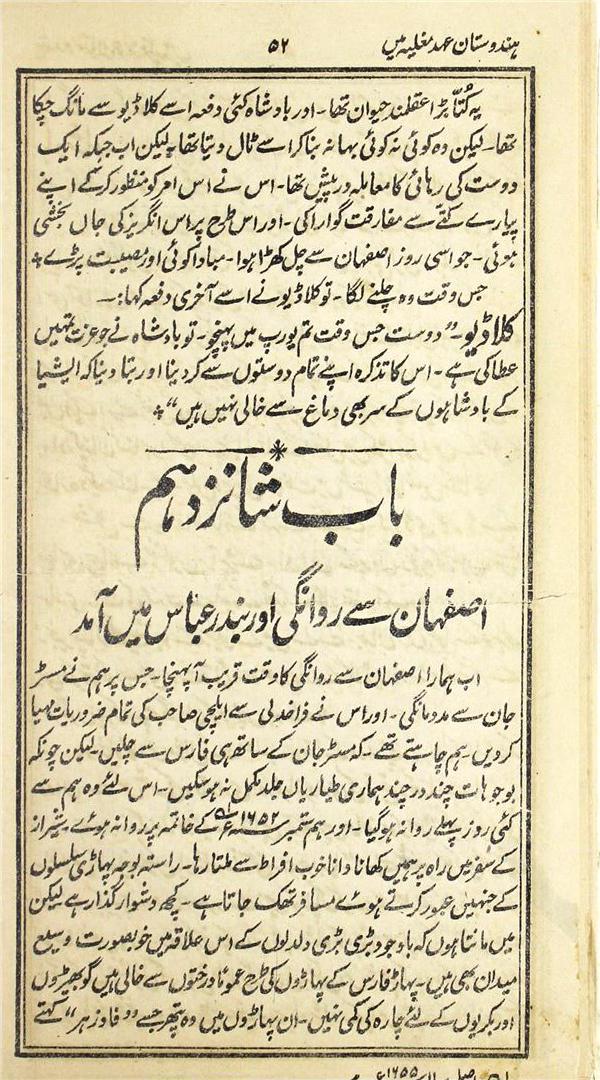 ہندوستان عہد مغلیہ میں ۵۲
یہ کُتا بڑا عقلمند حیوان تھا۔ اور بادشاہ کئی دفعہ اسے کلاڈیو سے مانگ چکا
تھا۔ لیکن وہ کوئی نہ کوئی بہانہ بنا کر اسے ٹال دیتا تھا۔ لیکن اب جبکہ ایک
دوست کی رہائی کا معاملہ درپیش تھا۔ اس نے اس امر کو منظور کر کے اپنے
پیارے کتے سے مفارقت گوارا کی۔ اور اس طرح پر اس انگریز کی جاں بخشی
ہوئی۔ جو اسی روز اصفہان سے چل کھڑا ہوا۔ مبادا کوئی اور مصیبت پڑے ۔
جس وقت وہ چلنے لگا۔ تو کلاڈیو نے اسے آخری دفعہ کہا:۔
کلاڈیو۔ "دوست جس وقت تم یورپ میں پہنچو۔ تو بادشاہ نے جو عزت تمہیں
عطا کی ہے۔ اس کا تذکرہ اپنے تمام دوستوں سے کر دینا اور بتا دینا کہ ایشیا
کے بادشاہوں کے سر بھی دماغ سے خالی نہیں ہیں" ۔
باب شانزدہم
اصفہان سے روانگی اور بندر عباس میں آمد
اب ہمارا اصفہان سے روانگی کا وقت قریب آ پہنچا۔ جس پر ہم نے مسٹر
جان سے مدد مانگی۔ اور اس نے فراخدلی سے ایلچی صاحب کی تمام ضروریات مہیا
کر دیں۔ ہم چاہتے تھے۔ کہ مسٹر جان کے ساتھ ہی فارس سے چلیں۔ لیکن چونکہ
بوجوہات چند در چند ہماری طیاریاں جلد مکمل نہ ہو سکیں۔ اس لئے وہ ہم سے
کئی روز پہلے روانہ ہو گیا۔ اور ہم ستمبر ۱۶۵۲ء کے خاتمہ پر روانہ ہوئے۔ شیراز
کے سفر میں راہ پر ہمیں کھانا دانا خوب افراط سے ملتا رہا۔ راستہ بوجہ پہاڑی سلسلوں
کے جنہیں عبور کرتے ہوئے مسافر تھک جاتا ہے۔ کچھ دشوار گذار ہے لیکن
میں مانتا ہوں کہ باوجود بڑی بڑی دلدلوں کے اس علاقہ میں خوبصورت وسیع
میدان بھی ہیں۔ پہاڑ فارس کے پہاڑوں کی طرح عموماً درختوں سے خالی ہیں گو بھیڑوں
اور بکریوں کے لئے چارہ کی کمی نہیں۔ ان پہاڑوں میں وہ پتھر جسے "فاوز ہر" کہتے